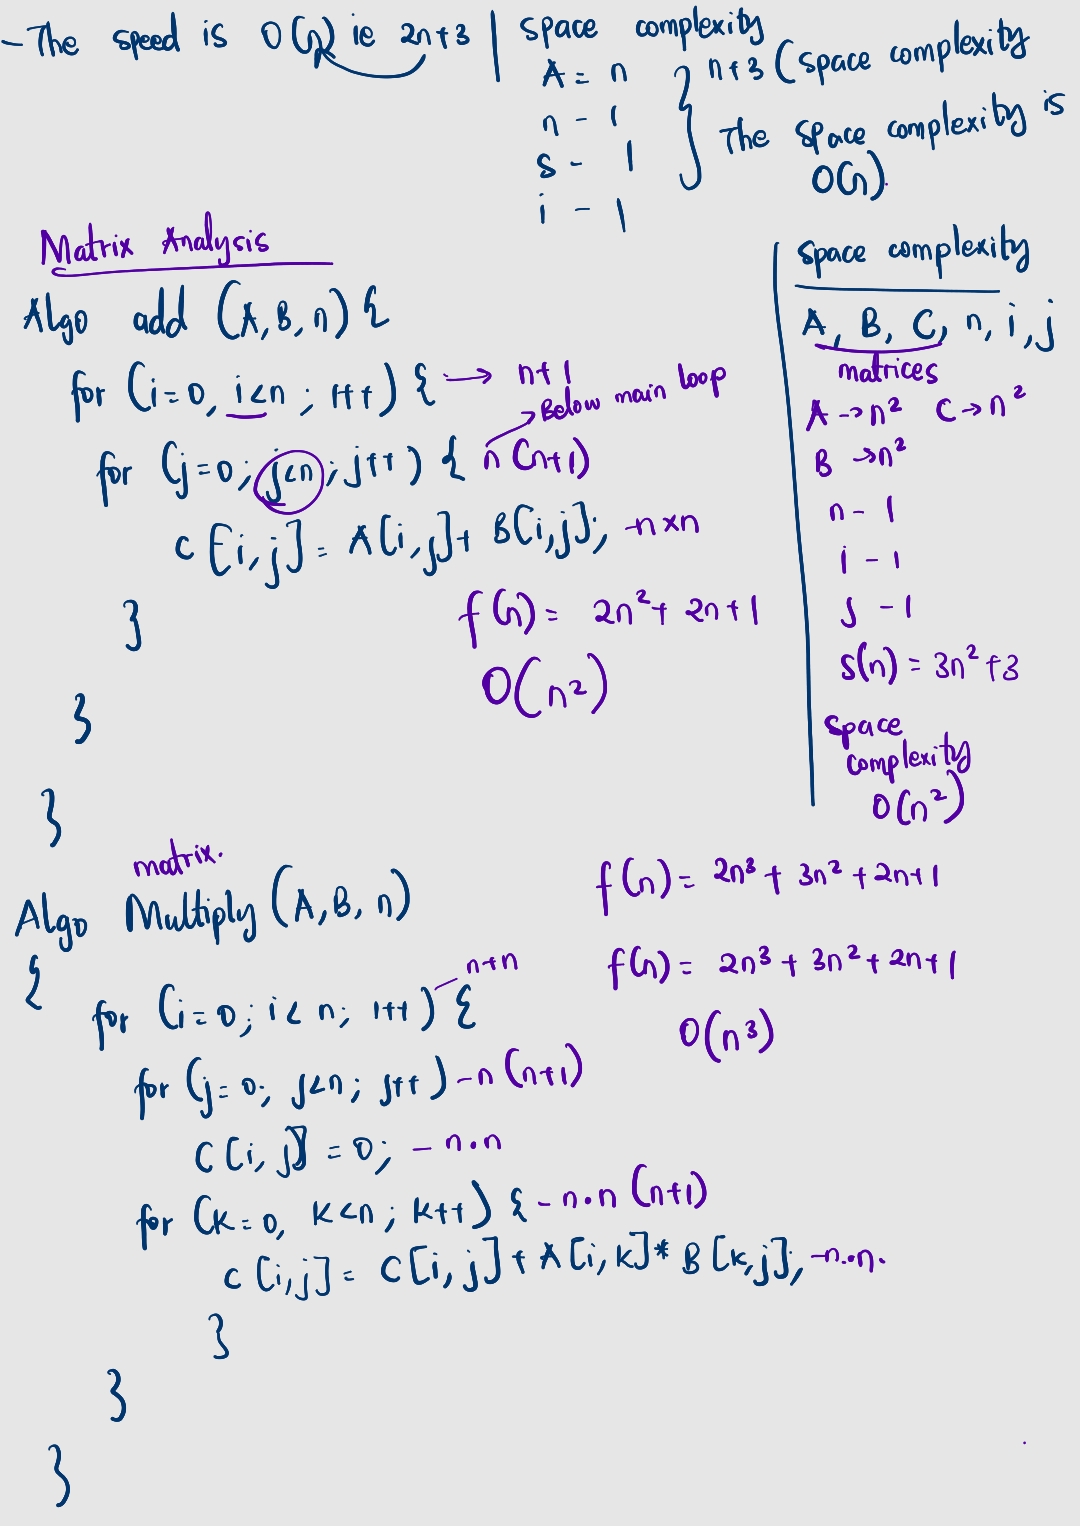 - The speed is O(n) ie 2n+3
space complexity
A = n
n - 1
s - 1
i - 1
n+3 (space complexity
The space complexity is
O(n).
Matrix Analysis
Algo add (A, B, n) {
for (i=0, i<n ; i++) { → n+1
Below main loop
for (j=0; j<n; j++) { n(n+1)
C[i,j] = A[i,j] + B[i,j]; - n×n
}
f(n) = 2n² + 2n+1
O(n²)
}
}
space complexity
A, B, C, n, i, j
matrices
A → n² C → n²
B → n²
n - 1
i - 1
j - 1
s(n) = 3n² + 3
space
complexity
O(n²)
matrix.
Algo Multiply (A, B, n)
{
for (i=0; i< n; i++) { n+n
for (j=0; j<n; j++) - n(n+1)
C[i, j] = 0; - n.n
for (k=0, k<n; k++) { - n.n (n+1)
C[i,j] = C[i,j] + A[i,k] * B[k,j]; - n..n.
}
}
}
f(n) = 2n³ + 3n² + 2n+1
f(n) = 2n³ + 3n² + 2n+1
O(n³)